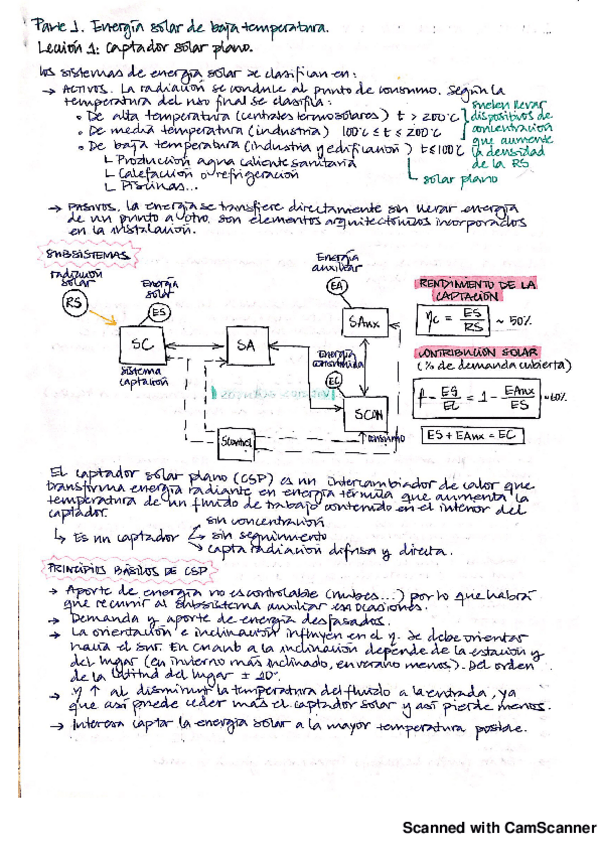 Parte 1. Energía solar de baja temperatura.
Lección 1: Captador solar plano.
Los sistemas de energía solar se clasifican en:
→ ACTIVOS. La radiación se conduce al punto de consumo. Según la
temperatura del uso final se clasifica:
• De alta temperatura (centrales termosolares) t > 200°C
• De media temperatura (industria) 100°C ≤ t ≤ 200°C
• De baja temperatura (industria y edificación) t ≤ 100°C
suelen llevar
dispositivos de
concentración
que aumente
la densidad
de la RS
L Producción agua caliente sanitaria
L Calefacción o refrigeración
L Piscinas...
L solar plano
→ PASIVOS. La energía se transfiere directamente sin llevar energía
de un punto a otro. Son elementos arquitectónicos incorporados
en la instalación.
SUBSISTEMAS
radiación
solar
RS
Energía
solar
ES
SC
Sistema
captación
SA
Energía
auxiliar
EA
SAux
Energía
consumida
EC
SCON
consumo
SControl
RENDIMIENTO DE LA
CAPTACIÓN
ηc = ES/RS ~ 50%
CONTRIBUCIÓN SOLAR
(% de demanda cubierta)
f - ES/EC = 1 - EAux/ES ~60%
ES + EAux = EC
El captador solar plano (CSP) es un intercambiador de calor que
transforma energía radiante en energía térmica que aumenta la
temperatura de un fluido de trabajo contenido en el interior del
captador.
↳ Es un captador
sin concentración
sin seguimiento
capta radiación difusa y directa.
PRINCIPIOS BÁSICOS DE CSP
→ Aporte de energía no es controlable (nubes...) por lo que habrá
que recurrir al subsistema auxiliar en ocasiones.
→ Demanda y aporte de energía desfasados.
→ La orientación e inclinación influyen en el η. Se debe orientar
hacia el sur. En cuanto a la inclinación depende de la estación y
del lugar (en invierno más inclinado, en verano menos). Del orden
de la latitud del lugar ± 10°.
→ η ↑ al disminuir la temperatura del fluido a la entrada, ya
que así puede ceder más el captador solar y así pierde menos.
→ Interesa captar la energía solar a la mayor temperatura posible.
Scanned with CamScanner